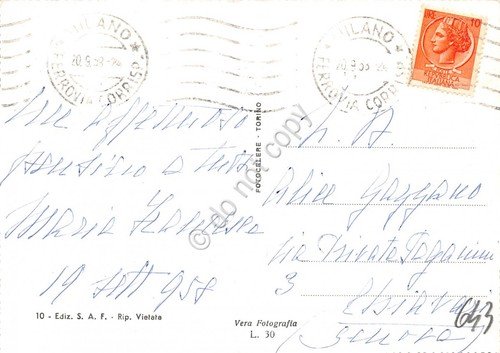 MILANO
20.9.58-24
FERROVIA CORRISP.
MILANO
20.9.58-24
FERROVIA CORRISP.
10
REPUBBLICA
ITALIANA
Un affettuoso
pensiero a tutti
Maria Francesca
19 sett 958
10 - Ediz. S. A. F. - Rip. Vietata
FOTOCELERE - TORINO
Vera Fotografia
L. 30
© do not copy
Alice Gazzano
Via Privata Paganini
3
Chiavari
(Genova)
643